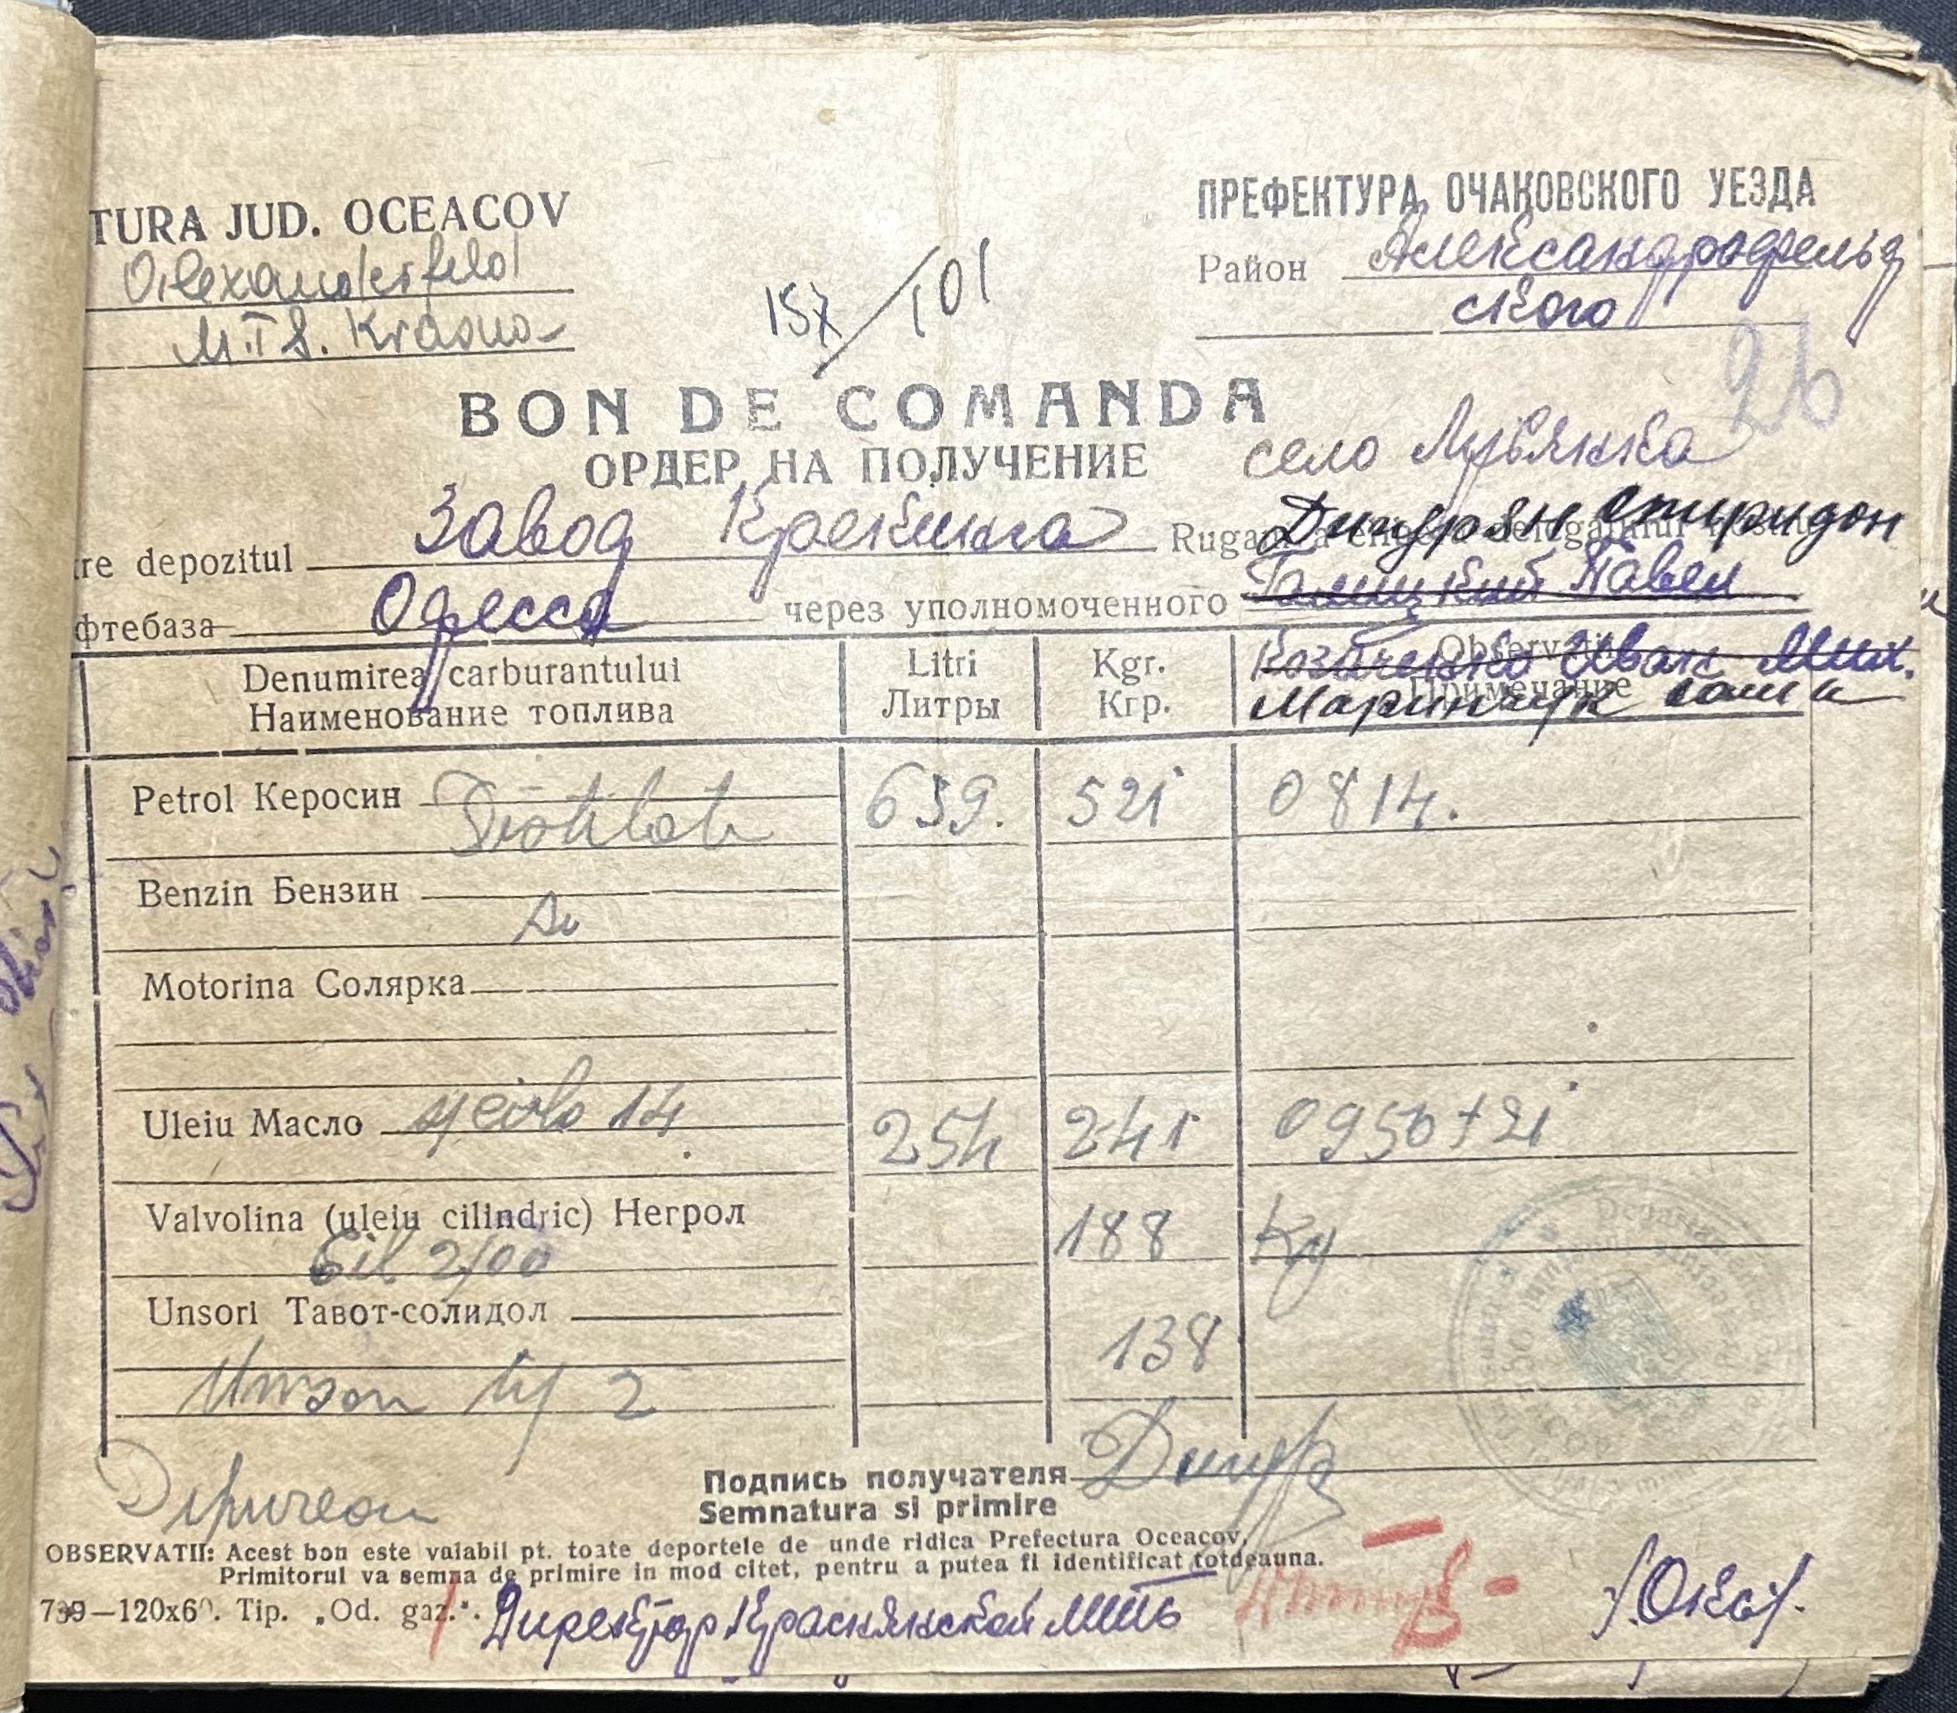 TURA JUD. OCEACOV
ПРЕФЕКТУРА ОЧАКОВСКОГО УЕЗДА
Alexanderfeld
Район Александрофельд
ского
M.T.S. Krasno-
157/101
26
BON DE COMANDA
ОРДЕР НА ПОЛУЧЕНИЕ
село
re depozitul Завод Крекинга
Дипурян Спиридон
фтебаза Одесса через уполномоченного Галицкий Павел
Denumirea carburantului Litri Kgr.
Иван Мих.
Наименование топлива Литры Кгр. Примечание
Маринчук
Petrol Керосин Distilat 659. 521 0814.
Benzin Бензин
Motorina Солярка
Uleiu Масло 14 254 241 0950+21
Valvolina (uleiu cilindric) Негрол 188 Kg
Cil 2/00
Unsori Тавот-солидол 138
Unsori 2
Подпись получателя Дипур
Semnatura si primire
Dipurean
OBSERVATII: Acest bon este valabil pt. toate deportele de unde ridica Prefectura Oceacov.
Primitorul va semna de primire in mod citet, pentru a putea fi identificat totdeauna.
739—120x60. Tip. „Od. gaz.".
Директор Краснянской МТС